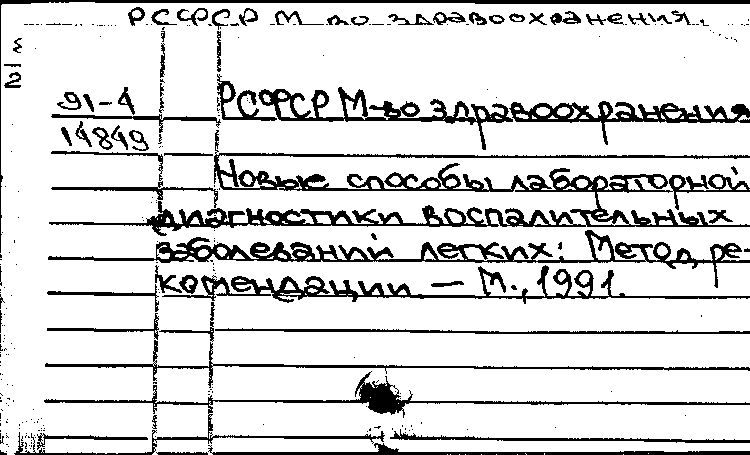 РСФСР М-во здравоохранения.
91-4
14849
РСФСР М-во здравоохранения
Новые способы лабораторной
диагностики воспалительных
заболеваний легких: Метод, ре-
комендации. — М., 1991.